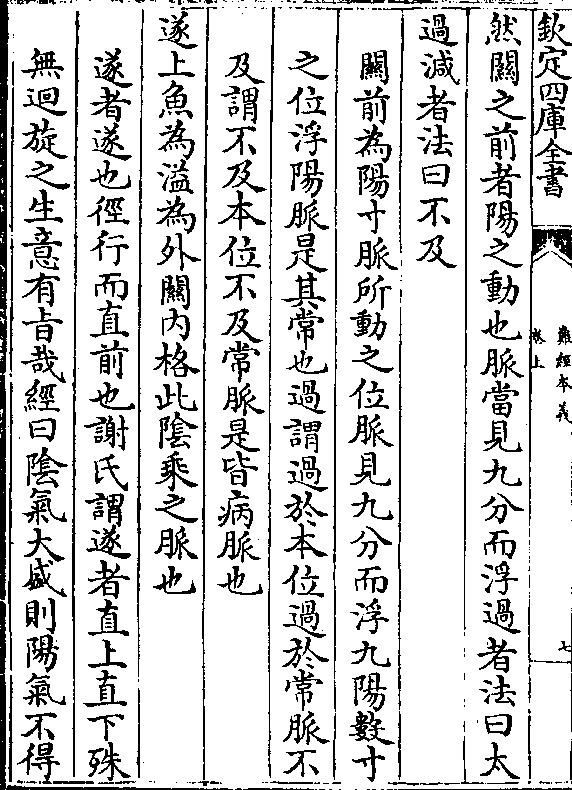 欽定四庫全書
難經本義
卷上
七
然關之前者陽之動也脈當見九分而浮過者法曰太
過減者法曰不及
關前為陽寸脈所動之位脈見九分而浮九陽數寸
之位浮陽脈是其常也過謂過於本位過於常脈不
及謂不及本位不及常脈是皆病脈也
遂上魚為溢為外關內格此陰乘之脈也
遂者遂也徑行而直前也謝氏謂遂者直上直下殊
無迴旋之生意有旨哉經曰陰氣太盛則陽氣不得